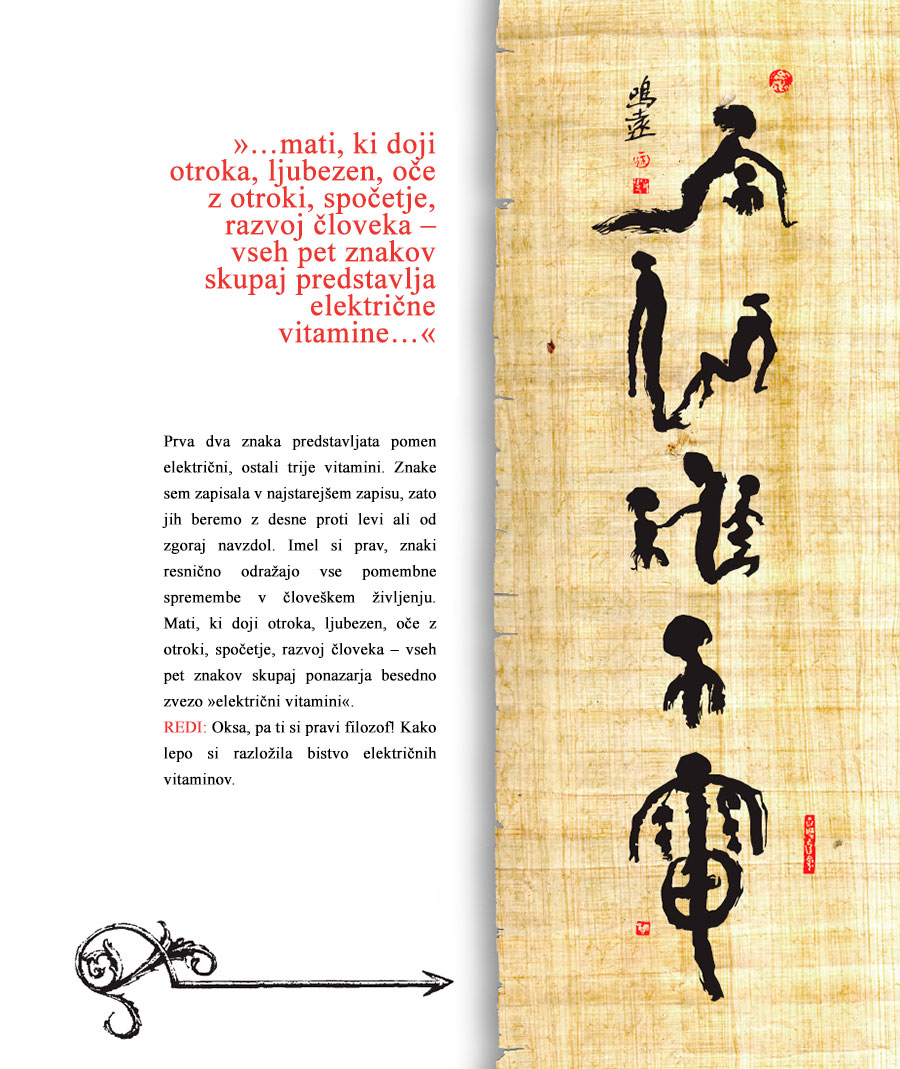 »…mati, ki doji
otroka, ljubezen, oče
z otroki, spočetje,
razvoj človeka –
vseh pet znakov
skupaj predstavlja
električne
vitamine…«
Prva dva znaka predstavljata pomen
električni, ostali trije vitamini. Znake
sem zapisala v najstarejšem zapisu, zato
jih beremo z desne proti levi ali od
zgoraj navzdol. Imel si prav, znaki
resnično odražajo vse pomembne
spremembe v človeškem življenju.
Mati, ki doji otroka, ljubezen, oče z
otroki, spočetje, razvoj človeka – vseh
pet znakov skupaj ponazarja besedno
zvezo »električni vitamini«.
REDI: Oksa, pa ti si pravi filozof! Kako
lepo si razložila bistvo električnih
vitaminov.
鳴遠